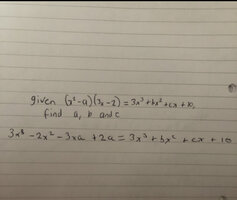 given (x²-a)(3x-2) = 3x³+bx²+cx+10,
find a, b and c
3x³ -2x² -3xa +2a = 3x³ + bx² + cx + 10